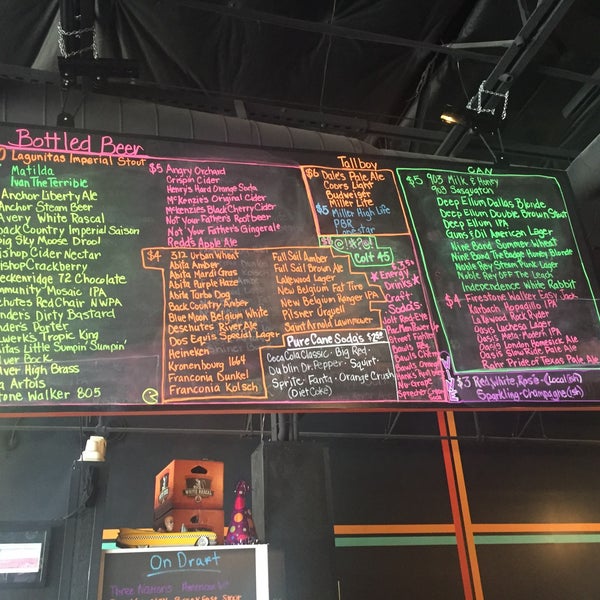 Bottled Beer
Lagunitas Imperial Stout
Matilda
Ivan The Terrible
Anchor Liberty Ale
Anchor Steam Beer
Avery White Rascal
Back Country Imperial Saison
Big Sky Moose Drool
Bishop Cider Nectar
Bishop Crackberry
Breckenridge 72 Chocolate
Community Mosaic IPA
Deschutes Red Chair NWPA
Founders Dirty Bastard
Founders Porter
Tropic King
Lagunitas Little Sumpin' Sumpin'
Bock
High Brass
Stella Artois
Firestone Walker 805
$5 Angry Orchard
Crispin Cider
Henry's Hard Orange Soda
McKenzie's Original Cider
McKenzies Black Cherry Cider
Not Your Father's Rootbeer
Not Your Father's Gingerale
Redd's Apple Ale
$4 312 Urban Wheat
Abita Amber
Abita Mardi Gras
Abita Purple Haze
Abita Turbo Dog
Back Country Amber
Blue Moon Belgium White
Deschutes River Ale
Dos Equis Special Lager
Heineken
Kronenbourg 1664
Franconia Dunkel
Franconia Kolsch
Full Sail Amber
Full Sail Brown Ale
Lakewood Lager
New Belgium Fat Tire
New Belgium Ranger IPA
Pilsner Urquell
Saint Arnold Lawnmower
Tallboy
$6 Dale's Pale Ale
Coors Light
Budweiser
Miller Lite
$5 Miller High Life
PBR
Lonestar
$ @!*?@!
Colt 45
Pure Cane Soda's
Coca Cola Classic - Big Red
Dublin Dr. Pepper - Squirt
Sprite - Fanta - Orange Crush
(Diet Coke)
*Energy
Drinks*
Craft
Soda's
Jolt
Can
$5 903 Milk & Honey
903 Sasquatch
Deep Ellum Dallas Blonde
Deep Ellum Double Brown Stout
Deep Ellum IPA
Guns & Oil American Lager
Nine Band Summer Wheat
Nine Band The Badge Honey Blonde
Noble Rey Steam Punk Lager
Noble Rey Off The Leash
Independence White Rabbit
$4 Firestone Walker Easy Jack
Karbach Hopadillo IPA
Lakewood Rock Ryder
Oasis Luchesa Lager
Oasis Meta-Modern IPA
Oasis London Homesick Ale
Oasis Slow Ride Pale Ale
Rahr Pride of Texas Pale Ale
$3 Red, White, Rosé - (Local)
Sparkling - Champagne
White Rascal
On Draft
Three Nations American Wit
Breakfast Stout